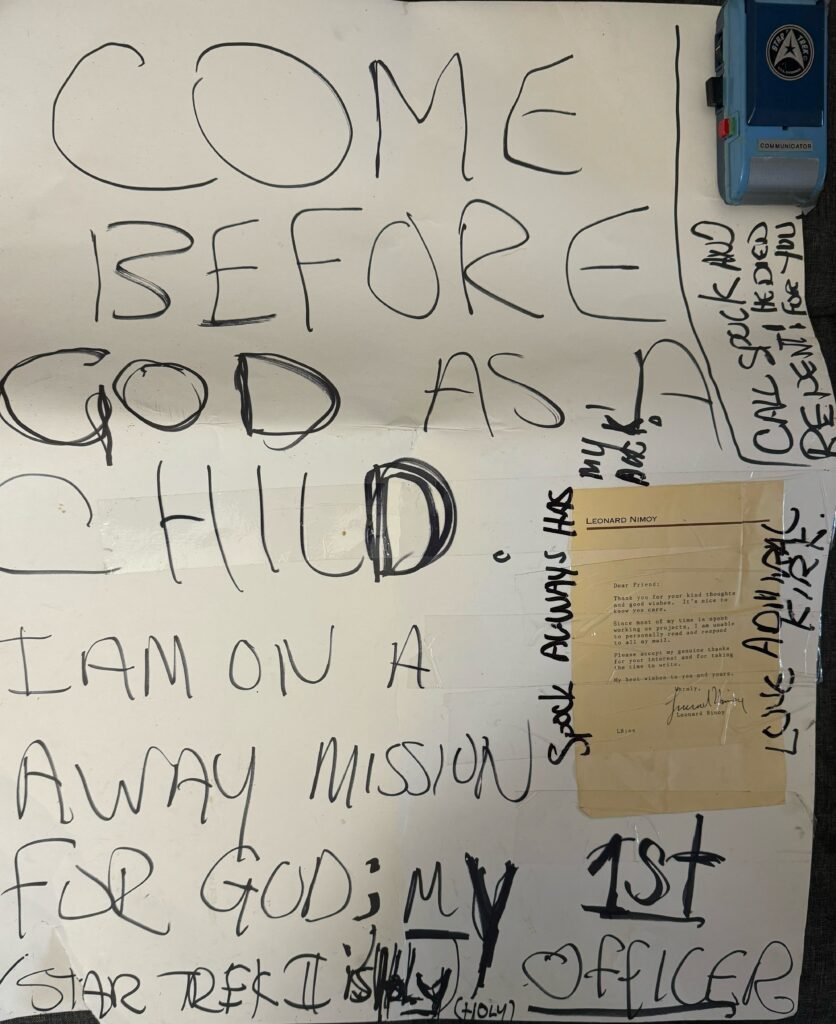 COME
BEFORE
GOD AS A
CHILD.
I AM ON A
AWAY MISSION
FOR GOD; MY 1st
OFFICER
(STAR TREK II is Holy)
(HOLY)
STAR TREK
COMMUNICATOR
CALL SPOCK AND
REPENT; HE DIED
FOR YOU
SPOCK ALWAYS HAS
MY
BACK!
LEONARD NIMOY
Dear Friend:
Thank you for your kind thoughts
and good wishes. It's nice to
know you care.
Since most of my time is spent
working on projects, I am unable
to personally read and respond
to all my mail.
Please accept my genuine thanks
for your interest and for taking
the time to write.
My best wishes to you and yours.
Warmly,
Leonard Nimoy
Leonard Nimoy
LOVE ADMIRAL
KIRK.